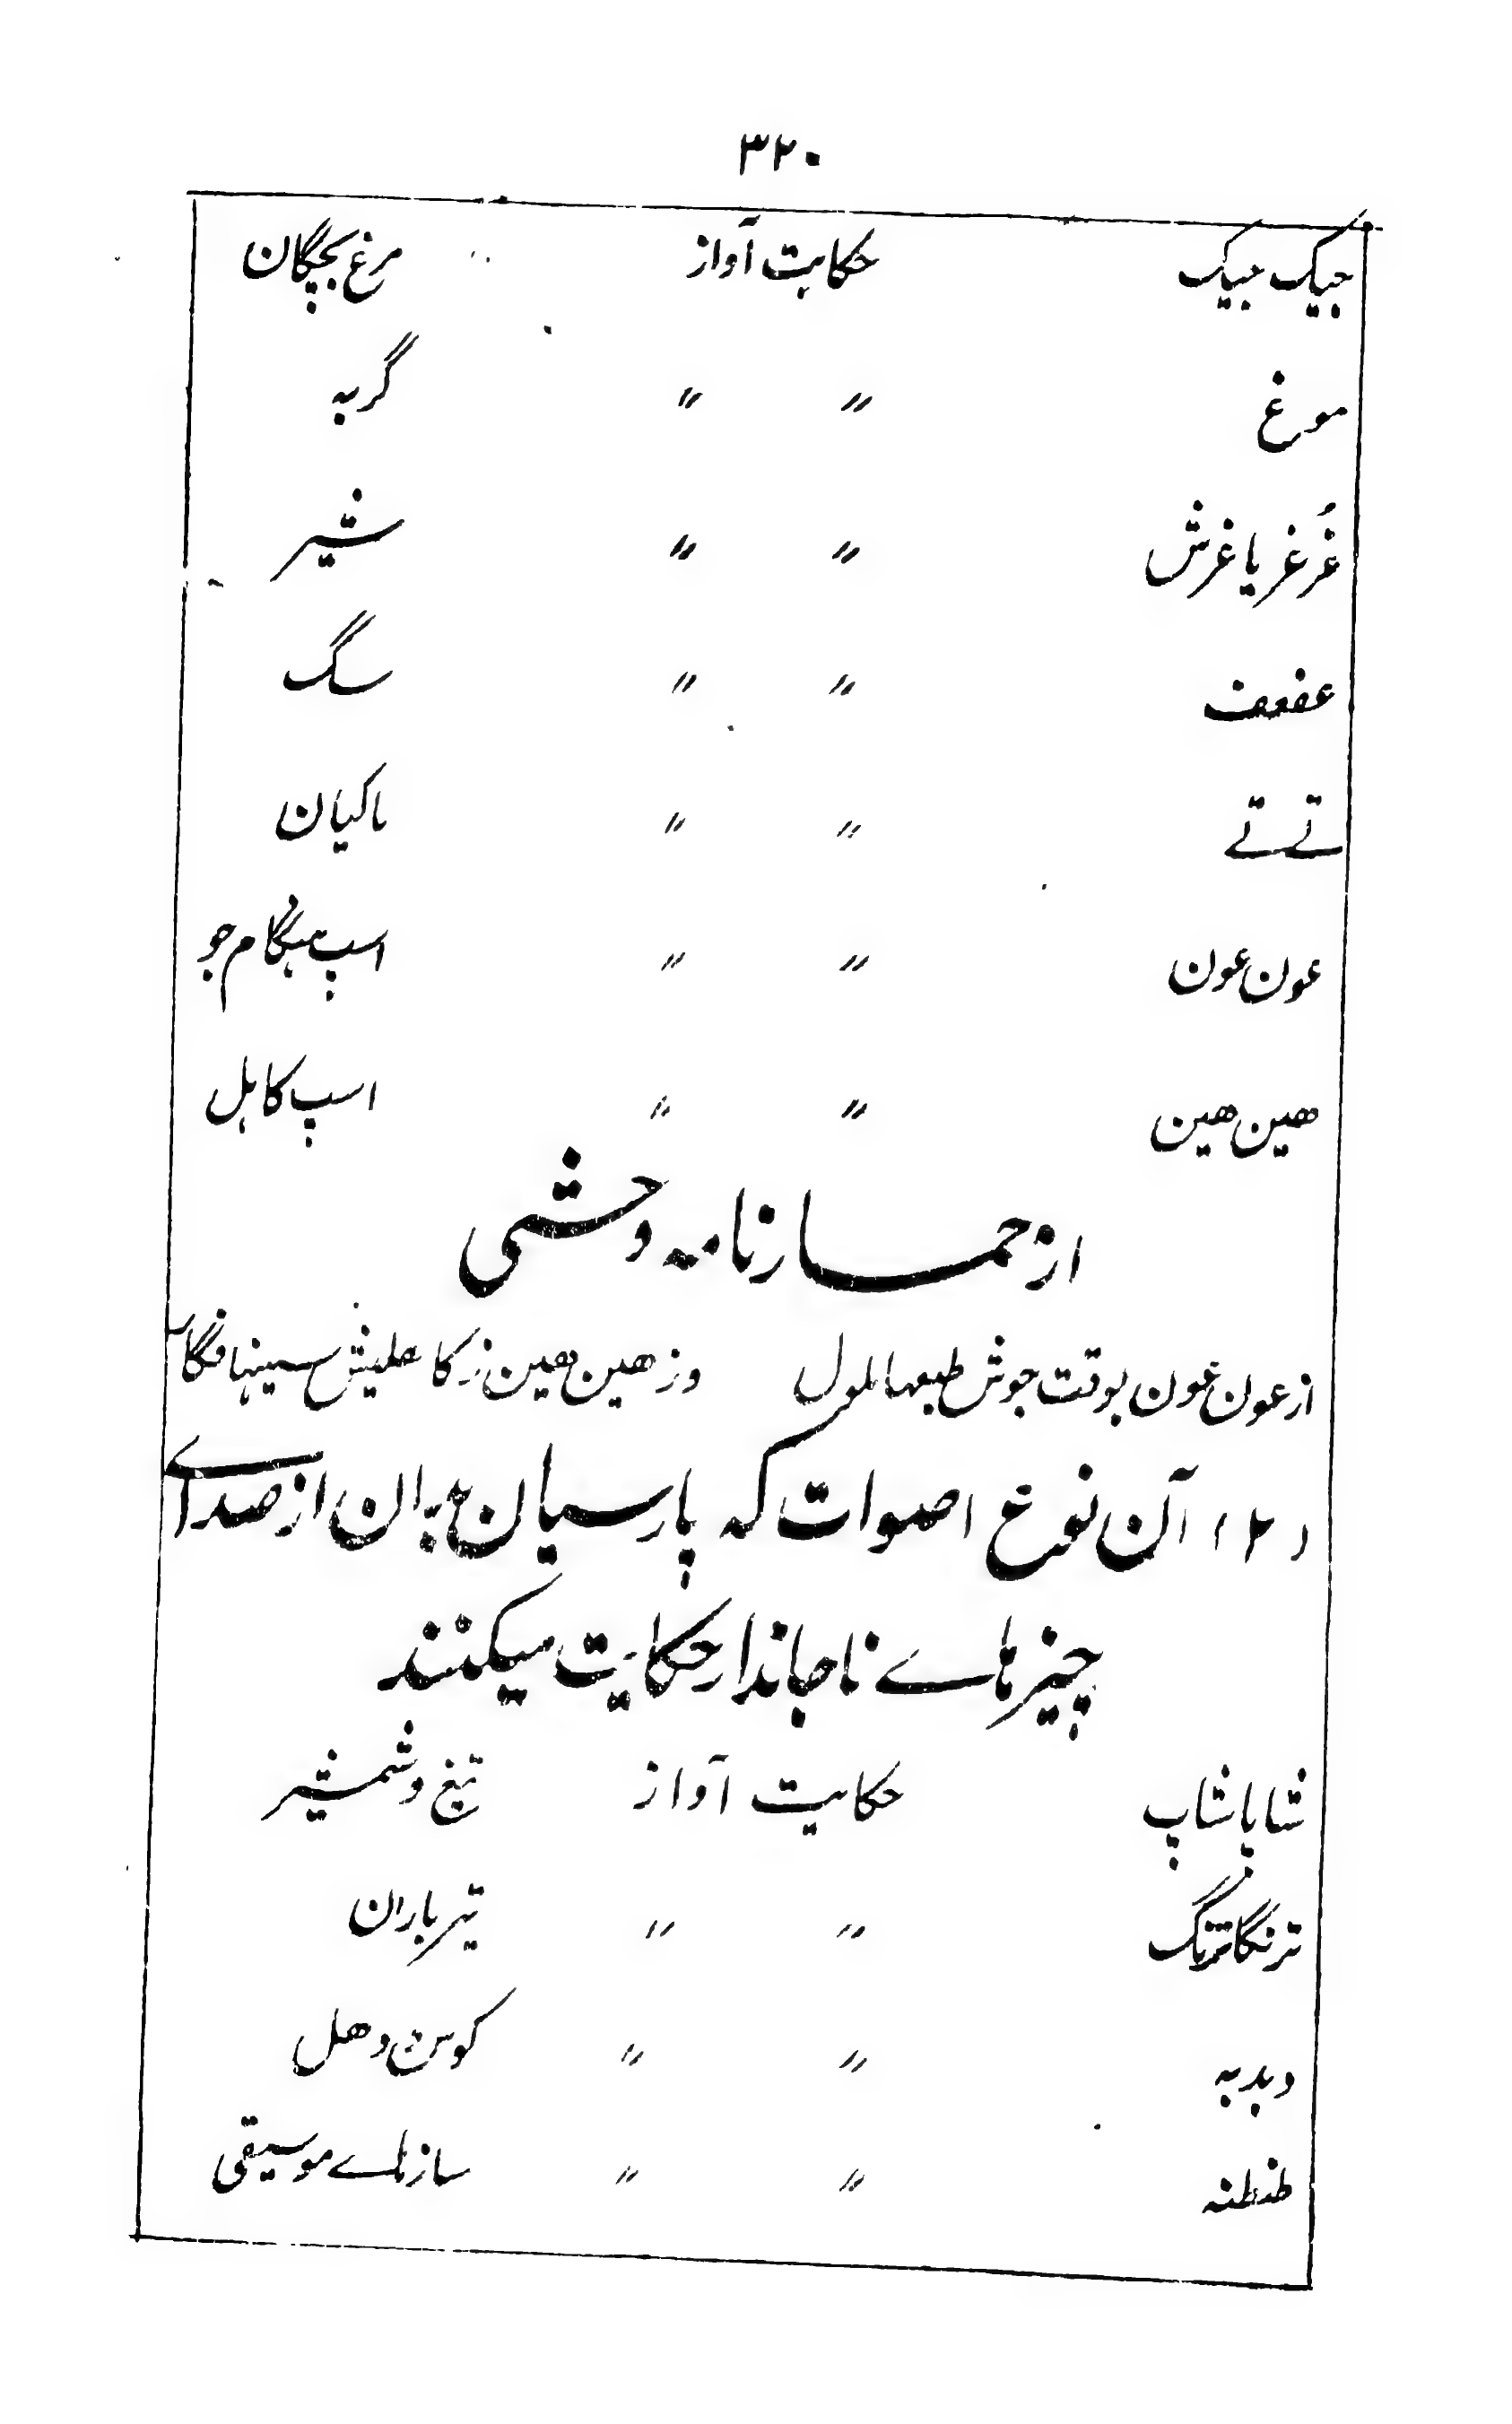 ۳۲۰
جیک جیک حکایت آواز مرغ بچگان
مورغ " " گربه
غُرغر یا غرش " " شیر
عفعف " " سگ
تے تے " " ماکیان
عون عون " " اسپ ہنگام جو
هین هین " " اسپ کاہل
از حمارنامہ وحشی
از عون عون بوقت جوش طبعها ملول وز هین هین ز کاهلیش سینہا فگار
(۲) آن نوع اصوات کہ پارسیان بران از صداے
چیزهاے ناجاندار حکایت میکنند
شاپاشاپ حکایت آواز تیغ و شمشیر
ترنگاترنگ " " تیر باران
دبدبہ " " کوس دهل
طنطنہ " " سازہاے موسیقی